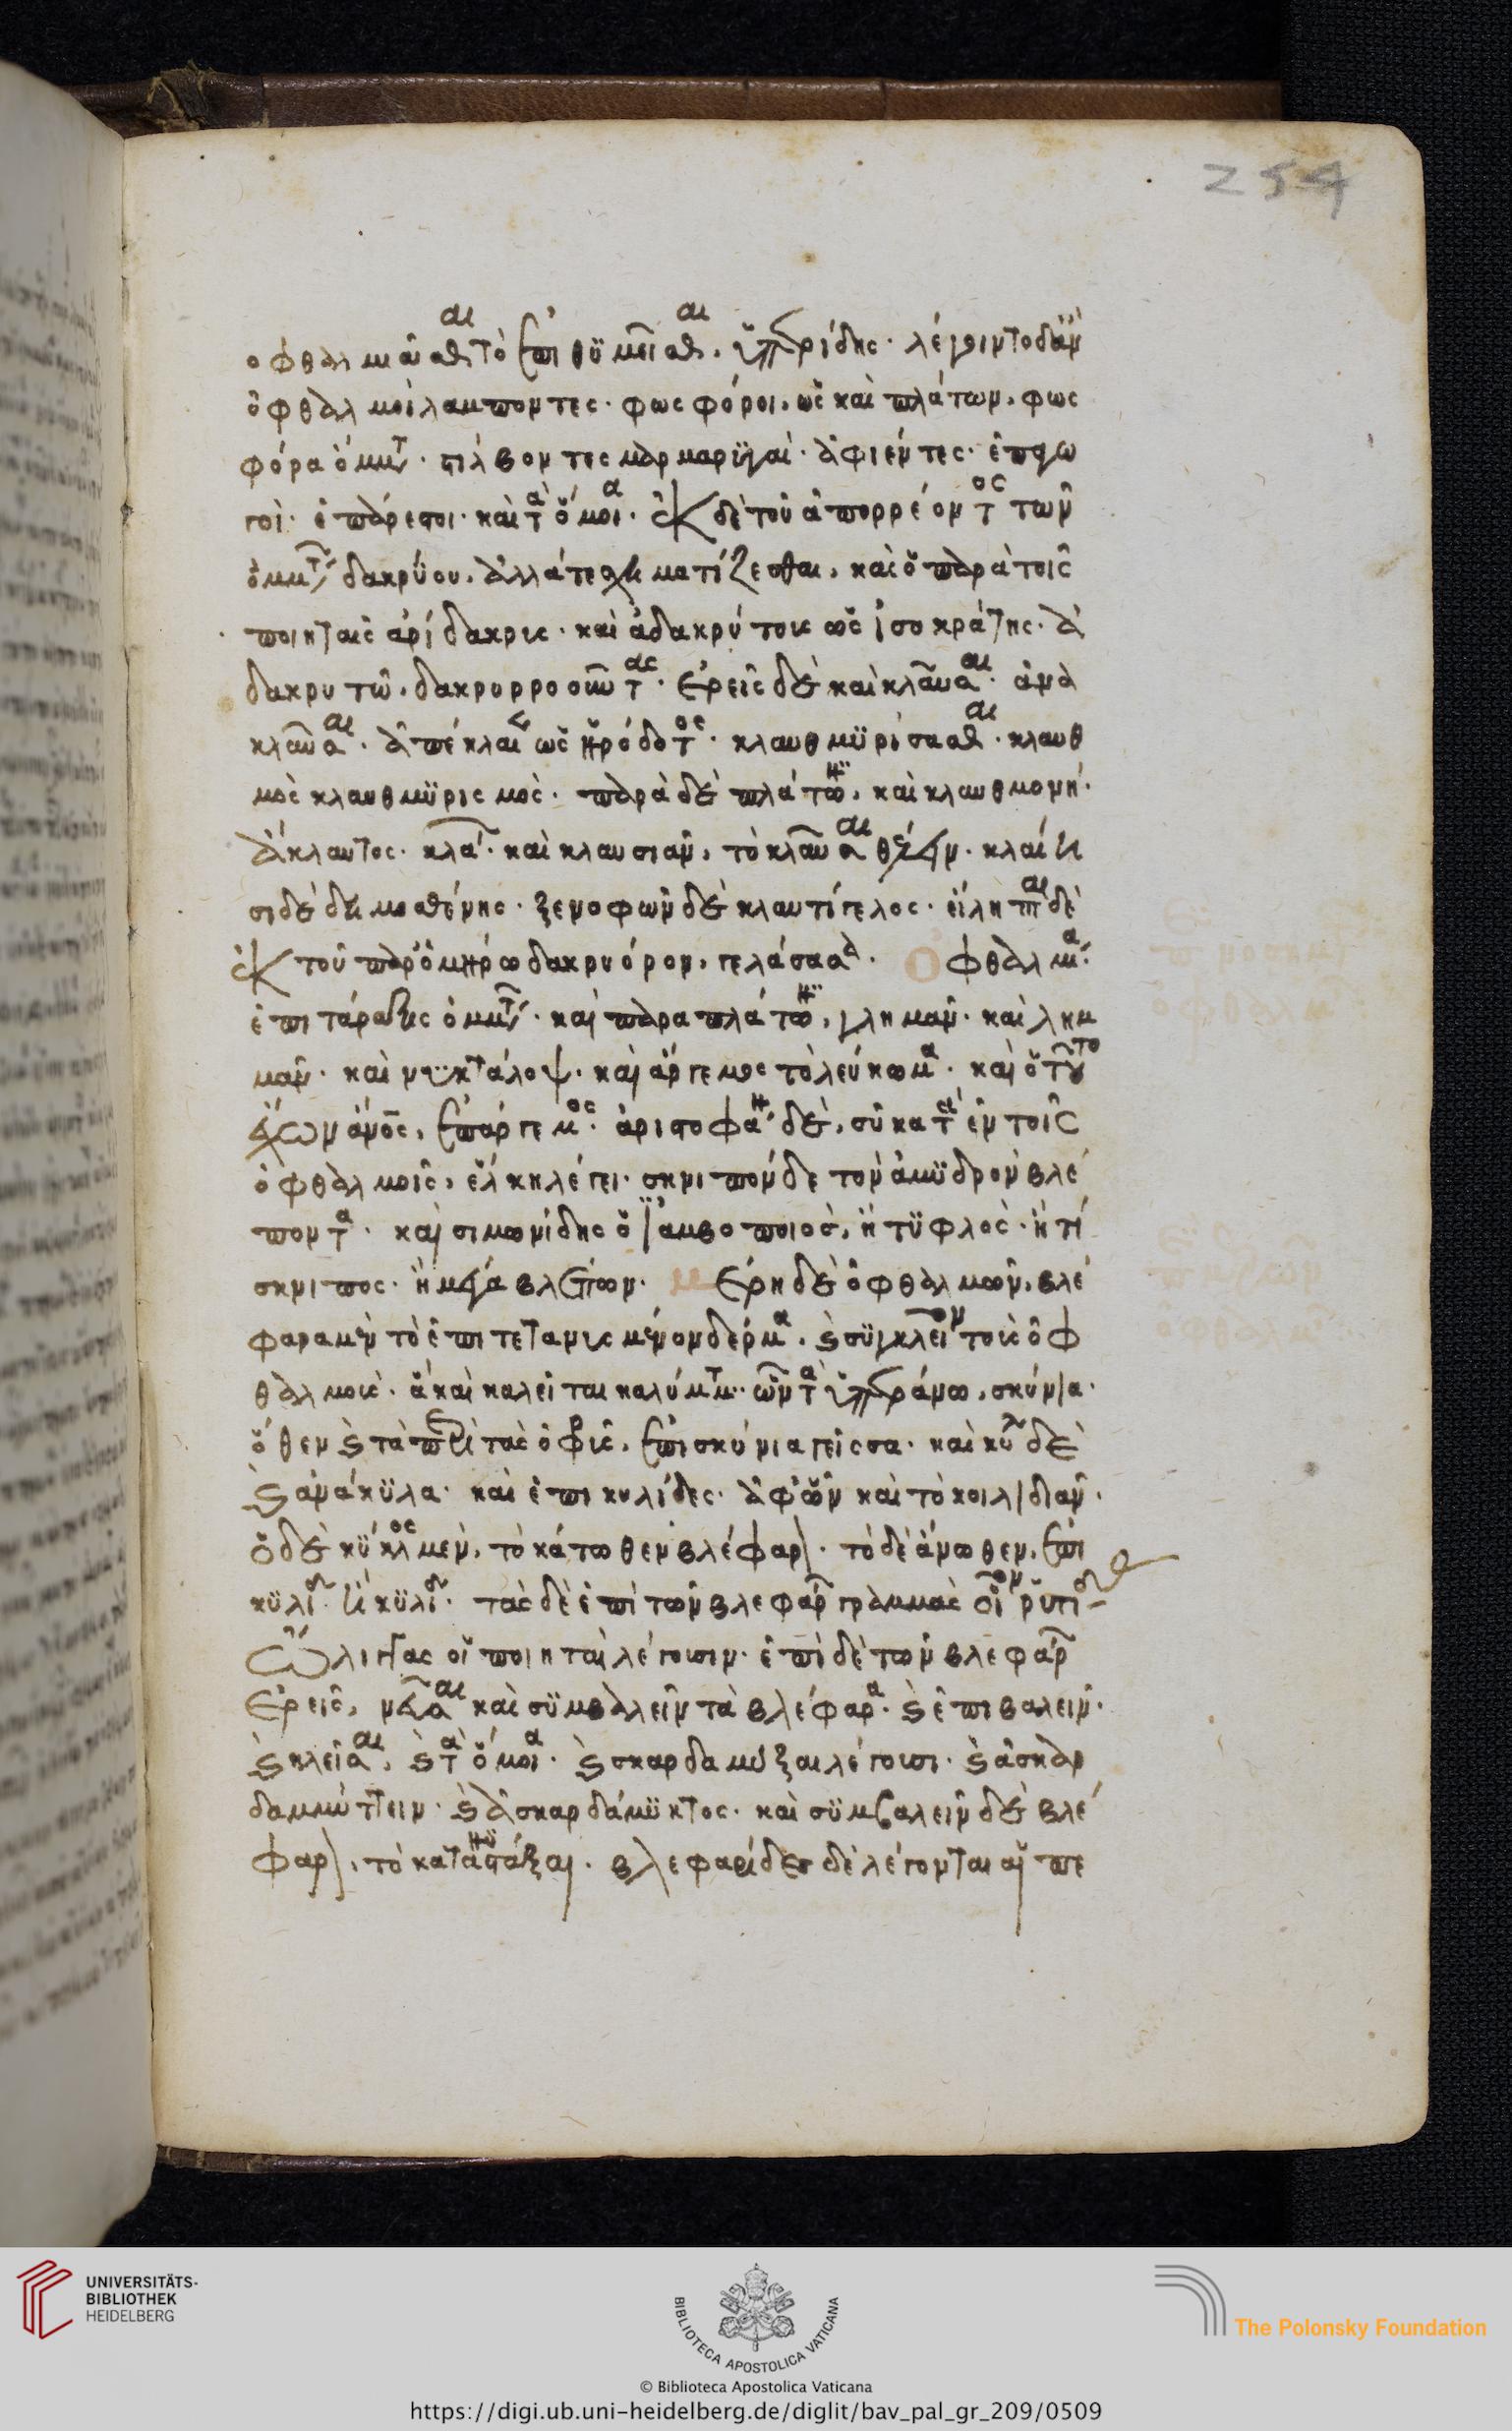 254
ὀφθαλμιᾶσαι τὸ ἐπιθυμεῖσαι. ὑπερίδης. λέγοιντο δ' ἂν
ὀφθαλμοὶ λαμποντες. φωσφόροι. ὡς καὶ πλάτων. φως
φόρα ὄμμτ. στίλβοντες μαρμαρυγαί. ἀφιέντες. ἐπαγω
γοί. ἐπάρεστοι. καὶ τὰ ὅμοια. ἐκ δὲ τοῦ ἀπορρέοντος τῶν
ὀμμτ δακρύου. ἀλλά τε σχηματίζεσθαι. καὶ ὁ παρὰ τοῖς
ποιηταῖς ἀρίδακρυς. καὶ ἀδακρύτους ὡς ἰσοκράτης. ἀ
δακρυτῶ. δακρυρροοῦντας. ἐρεῖς δὲ καὶ κλαῦσαι. ἀνα
κλαῦσαι. ἀπέκλαι ὡς ἡρόδοτος. κλαυθμυρίσασαι. κλαυθ
μὸς κλαυθμυρισμός. παρὰ δὲ πλάτωνι. καὶ κλαυθμονή.
ἄκλαυτος. κλα. καὶ κλαυσιᾶν. τὸ κλαῦσαι θέλειν. κλαίει
σι δὲ δημοσθένης. ξενοφῶν δὲ κλαυσίγελος. εἴληπται δὲ
ἐκ τοῦ παρ' ὁμήρω δακρυόεν. γελάσασα. Ὀφθαλμ
ἐπιτάραξις ὀμμτ. καὶ παρα πλάτωνι. γλημᾶν. καὶ λημ
μᾶν. καὶ νυκτάλοψ. καὶ ἄργεμος τὸ λεύκωμα. καὶ ὁ τοῦτο
ἔχων ἀνος. ἐπάργεμος. ἀριστοφάνη δὲ. σῦκα τὰ ἐν τοῖς
ὀφθαλμοῖς. ἕλκη λέγει. σκνιπὸν δὲ τὸν ἀμυδρὸν βλέ
ποντα. καὶ σιμωνίδης ὁ ἰαμβοποιός. ἢ τυφλός. ἤ τί
σκνιπος. ἢ μέγα βλέπων. μέρη δὲ ὀφθαλμῶν. βλέ
φαρα μὲν τὸ ἐπιτεταμένον δέρμα. καὶ συγκλεῖον τοὺς ὀφ
θαλμούς. ἃ καὶ καλεῖται καλύμμτ. ὧν τὰ ὑπεράνω. σκύνια.
ὅθεν καὶ τὰ περὶ τὰς ὀφρῦς. ἐπισκύνια γεῖσσα. καὶ κυλ δὲ
καὶ ἀνάκυλα. καὶ ἐπικυλίδες. ἀφ' ὧν καὶ τὸ κοιλιδιᾶν.
ὁ δὲ κύκλος μὲν. τὸ κάτωθεν βλέφαρ. τὸ δὲ ἄνωθεν. ἐπι
κυλι. ἢ κυλι. τὰς δὲ ἐπὶ τῶν βλεφάρ γραμμὰς οἷον ῥυτι
ὦλιγγας οἱ ποιηταὶ λέγουσιν. ἐπὶ δὲ τῶν βλεφάρ
ἐρεῖς. μῦσαι καὶ συμβαλεῖν τὰ βλέφαρα. καὶ ἐπιβαλεῖν.
καὶ κλεῖσαι. καὶ τὰ ὅμοια. καὶ σκαρδαμύξαι λέγουσι. καὶ ἀσκαρ
δαμμύττειν. καὶ ἀσκαρδάμυκτος. καὶ συμβαλεῖν δὲ βλέ
φαρ. τὸ καταστάξαι. βλεφαρίδες δὲ λέγονται αἵ τε
UNIVERSITÄTS-
BIBLIOTHEK
HEIDELBERG
BIBLIOTECA APOSTOLICA VATICANA
The Polonsky Foundation
© Biblioteca Apostolica Vaticana
https://digi.ub.uni-heidelberg.de/diglit/bav_pal_gr_209/0509